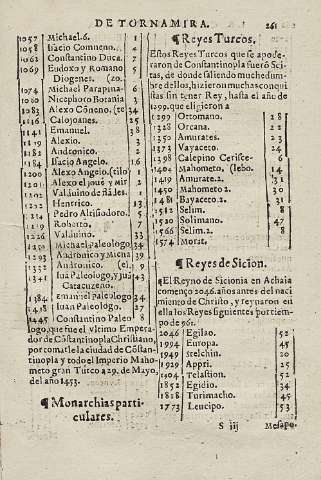 DE TORNAMIRA. 261
1057 Michael.6. 1
1058 Isacio Comneno. 4
1062 Constantino Duca. 7
1069 Eudoxo y Romano 5
Diogenes. (zo.
1074 Michael Parapina- 6
1080 Nicephoro Botania 3
1083 Alexo Cõneno. (te 34
1116 Calojoanes. 25
1141 Emanuel. 38
Alexio. 3
Andronico. 2
Isacio Angelo. 16
1200 Alexo Angelo. (tilo 1
1201 Alexo el joué y Mir 2
1202 Valduino de Flãdes. 1
1203 Hentrico. 13
1214 Pedro Altisiodoro. 5
Roberto. 7
Valduino. 33
Michael Paleologo. 34
Andronico y Michael
Andronico. (el. 9
Iuã Paleologo, y Juã
Catacuzeno.
1384 Emanuel Paleologo 34
1418 Iuan Paleologo. 27
1445 Constantino Paleo 8
logo, que fue el vltimo Empera-
dor de Cõstantinopla Christiano,
por tomarle la ciudad de Cõstan-
tinopla y todo el Imperio Maho-
meto gran Turco a 29. de Mayo,
del año 1453.
¶ Monarchias parti-
culares.
¶ Reyes Turcos.
Estos Reyes Turcos que se apode-
raron de Constantinopla fueró Sci-
tas, de donde saliendo muchedum-
bre dellos, hizieron muchas conquis
tas sin tener Rey, hasta el año de
1299. que eligieron a
1299 Ottomano. 28
1328 Orcana. 22
1350 Amurates. 23
1373 Vayaceto. 24
1398 Calepino Ceriscc- 6
1404 Mahometo. (lebo. 14
1419 Amurate.2. 31
1450 Mahometo 2. 30
1481 Bayaceto.2. 31
1512 Selim. 8
1520 Solimano. 47
1566 Selim.2. 8
1574 Morat.
¶ Reyes de Sicion.
El Reyno de Sicionia en Achaia
començo 2046. años antes del naci
miento de Christo, y reynaron en
ella los Reyes siguientes por tiem-
po de 961.
2046 Egilao. 52
1994 Europa. 45
1949 Stelchin. 20
1929 Appti. 25
1904 Telastion. 52
1852 Egidio. 34
1818 Turimacho. 45
1773 Leucipo. 53
S iij Mesapo.